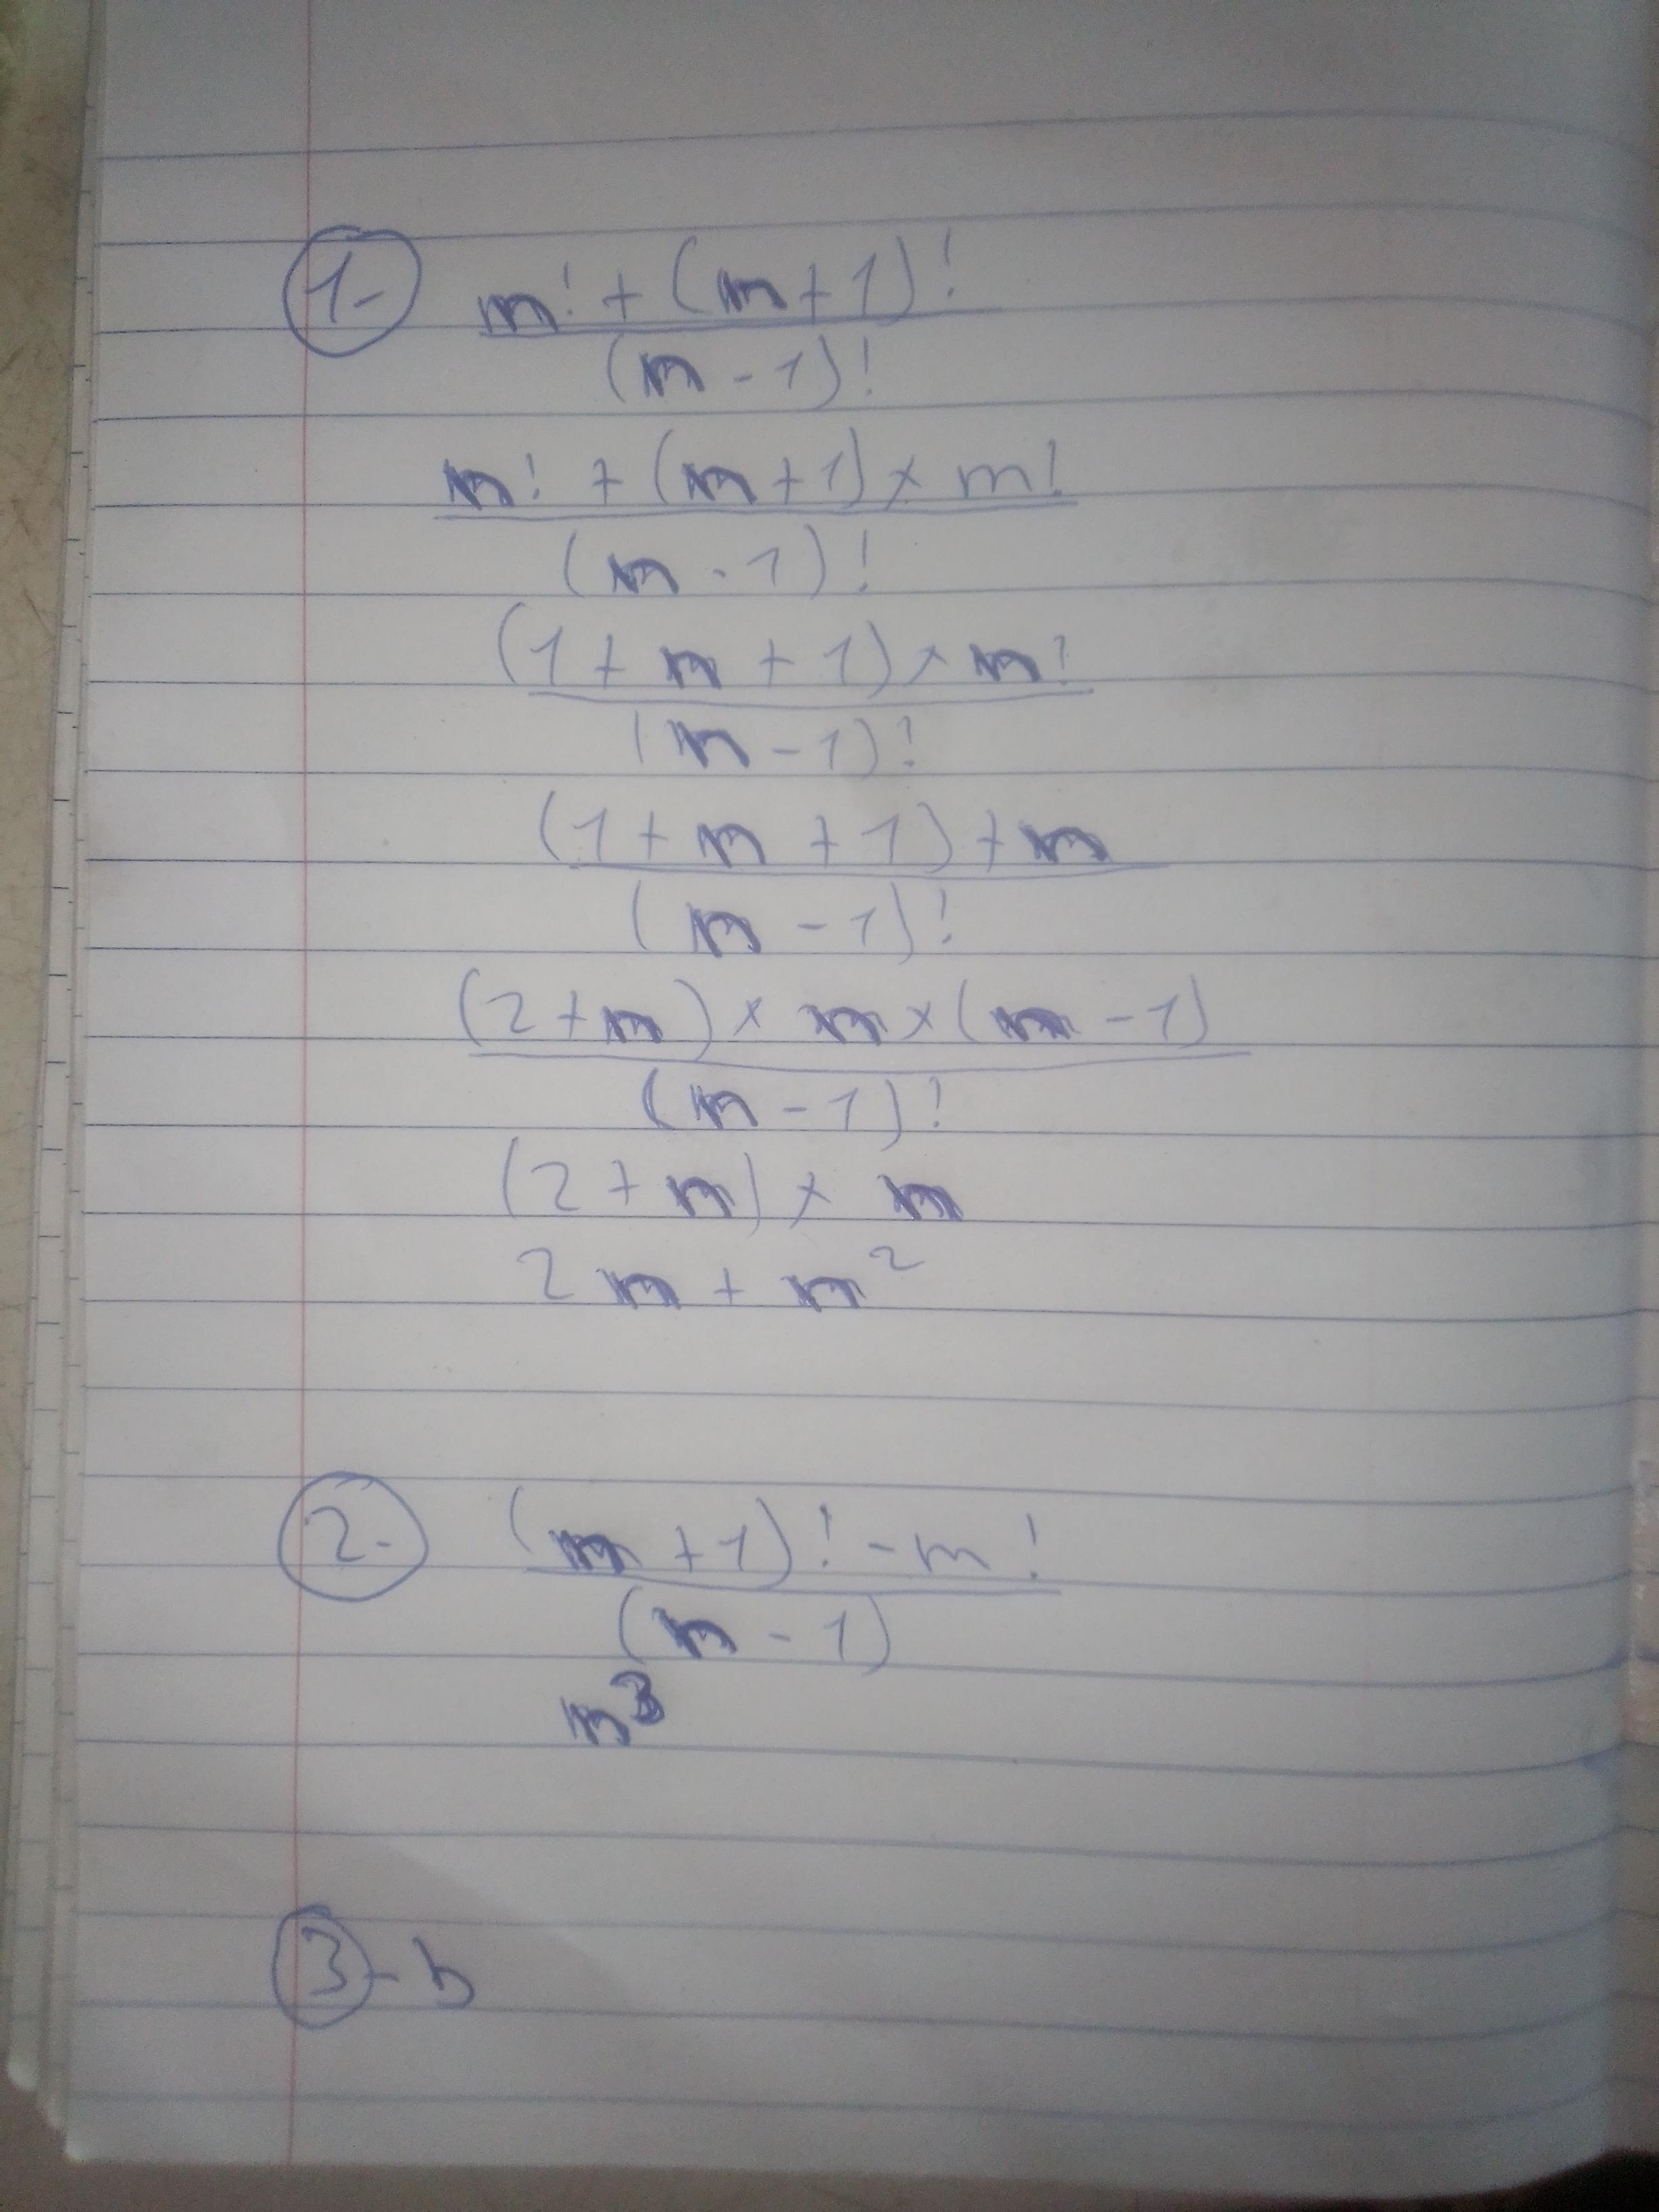 1- m! + (m+1)!
(m-1)!
m! + (m+1) x m!
(m-1)!
(1+m+1) x m!
(m-1)!
(1+m+1)+m
(m-1)!
(2+m) x m x (m-1)
(m-1)!
(2+m) x m
2m + m²
2- (m+1)! - m!
(m-1)
m³
3- b